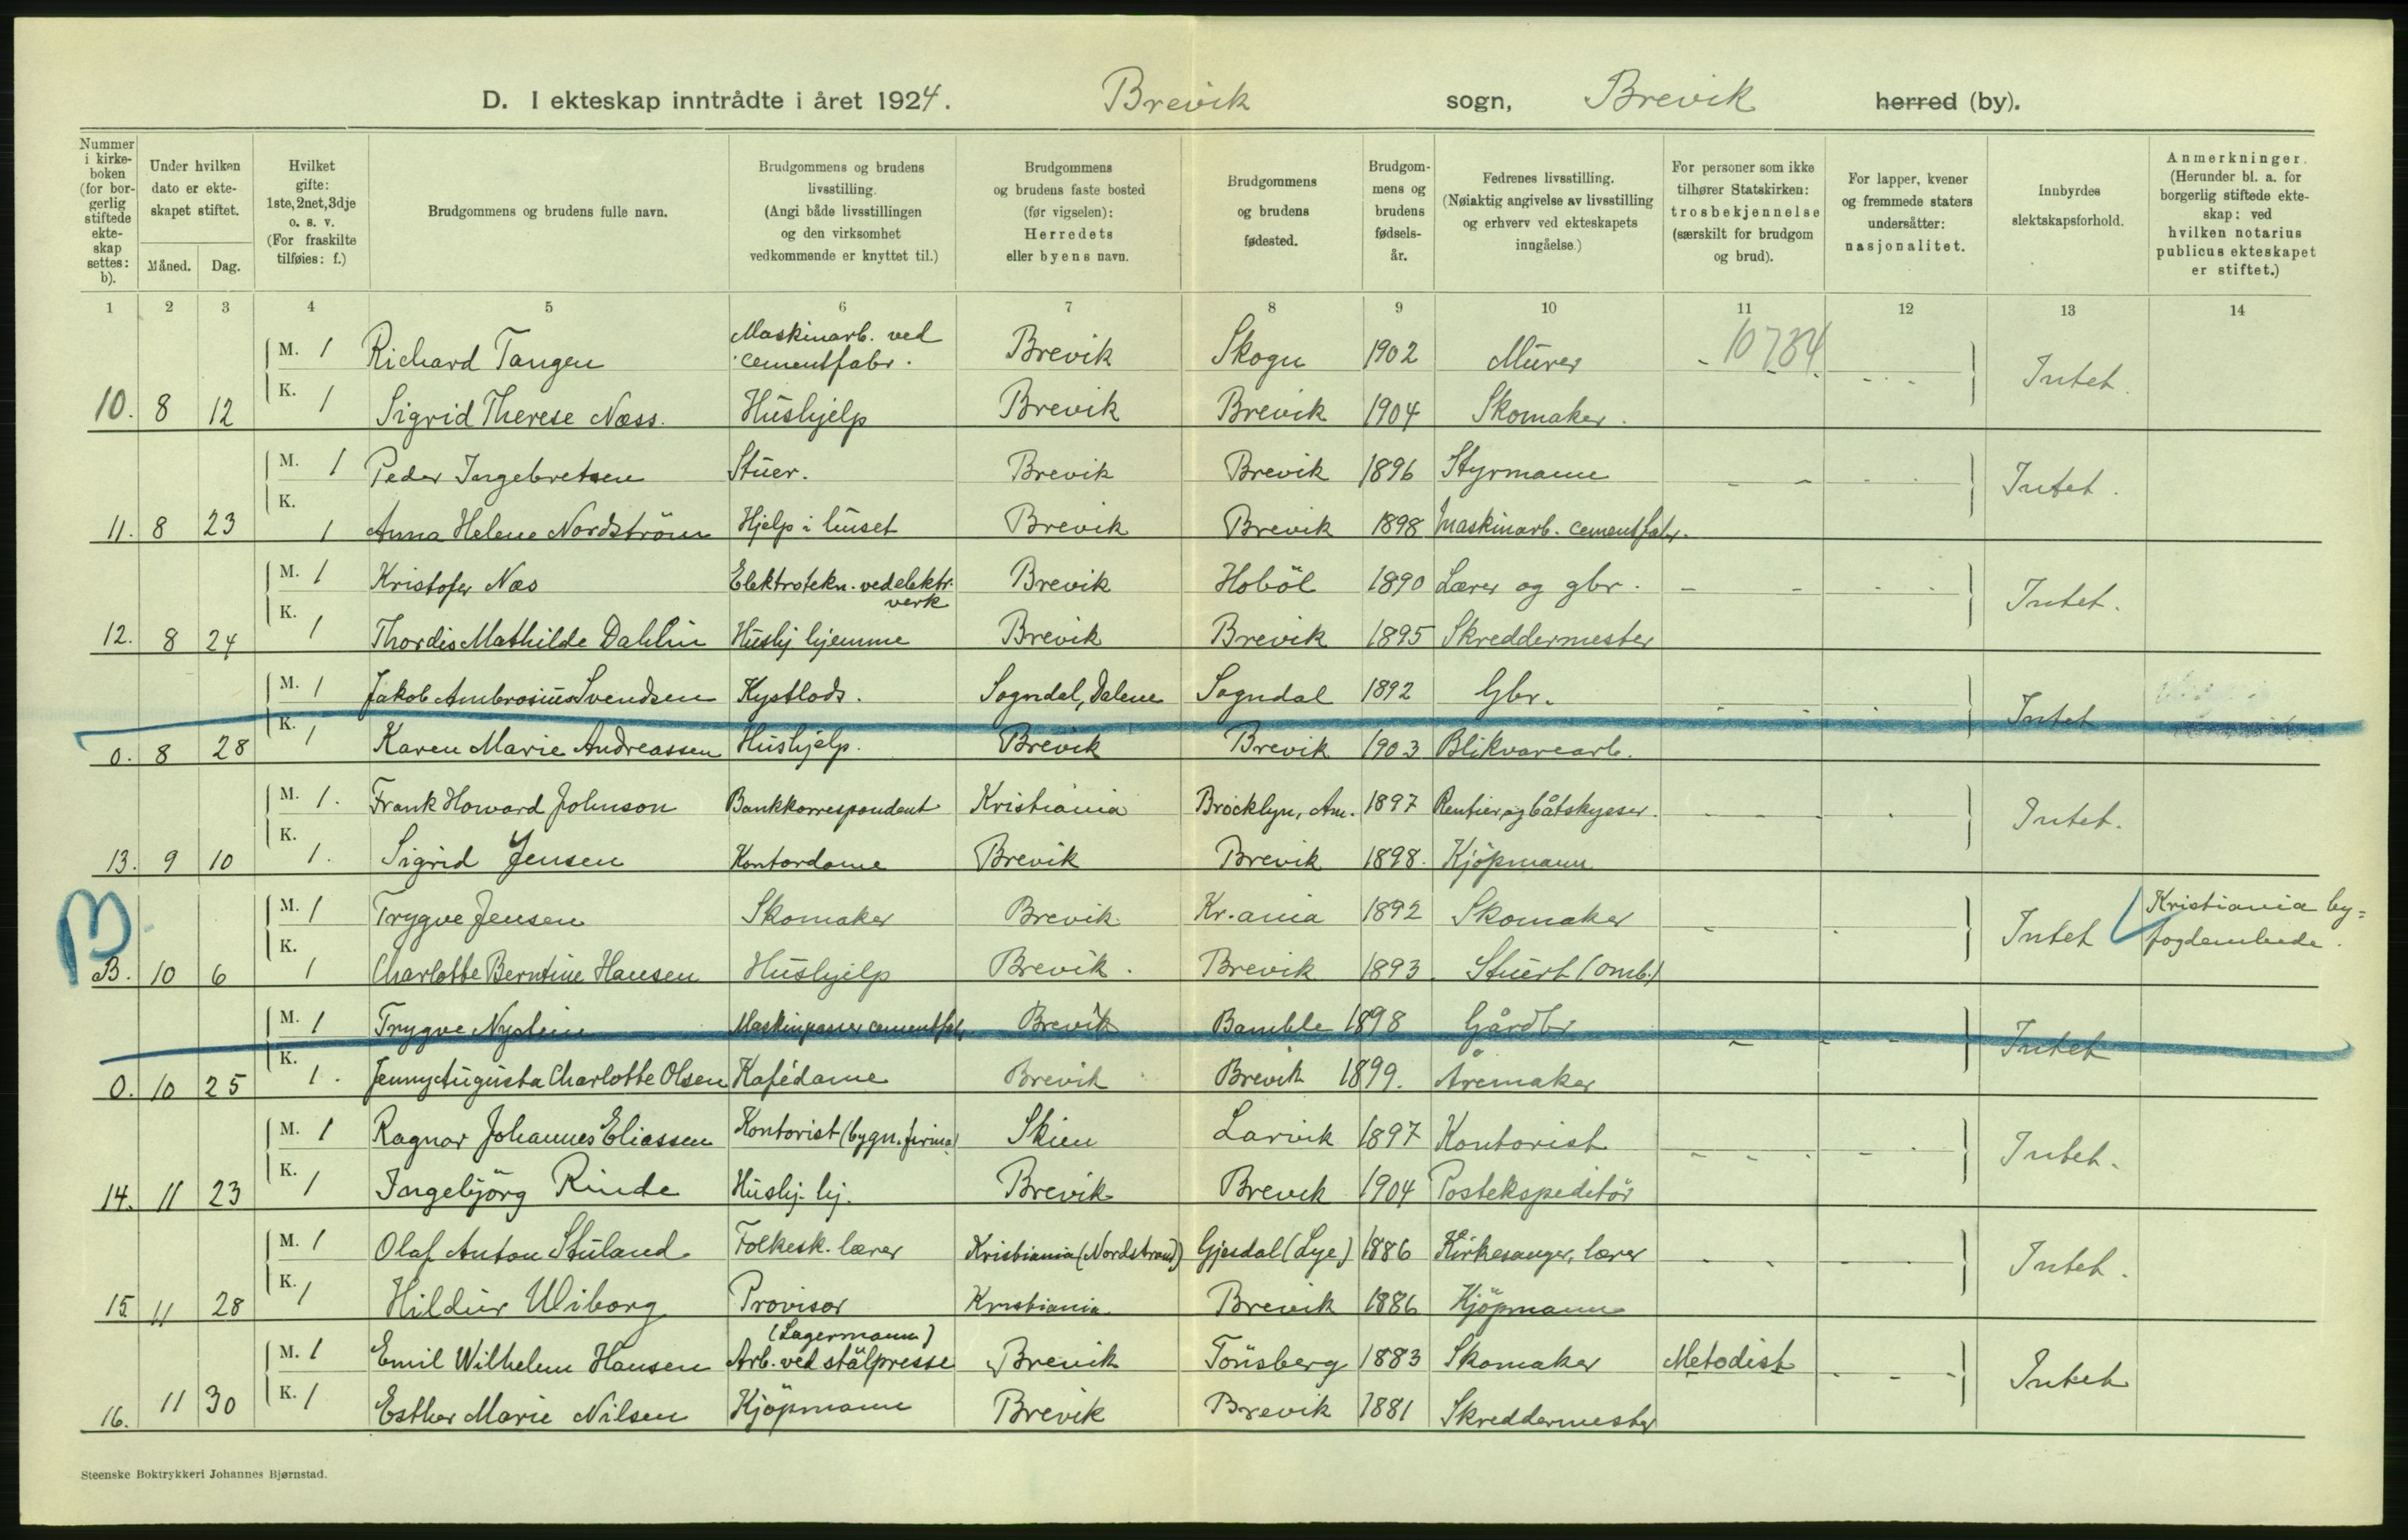 D. I ekteskap inntrådte i året 1924. Brevik sogn, Brevik herred (by).
Nummer i kirkeboken (for borgerlig stiftede ekteskap settes: b).
Under hvilken dato er ekteskapet stiftet.
Måned. Dag.
Hvilket gifte: 1ste, 2net, 3dje o. s. v. (For fraskilte tilføies: f.)
Brudgommens og brudens fulle navn.
Brudgommens og brudens livsstilling. (Angi både livsstillingen og den virksomhet vedkommende er knyttet til.)
Brudgommens og brudens faste bosted (før vigselen): Herredets eller byens navn.
Brudgommens og brudens fødested.
Brudgommens og brudens fødselsår.
Fedrenes livsstilling. (Nøiaktig angivelse av livsstilling og erhverv ved ekteskapets inngåelse.)
For personer som ikke tilhører Statskirken: trosbekjennelse (særskilt for brudgom og brud).
For lapper, kvener og fremmede staters undersåtter: nasjonalitet.
Innbyrdes slektskapsforhold.
Anmerkninger. (Herunder bl. a. for borgerlig stiftede ekteskap: ved hvilken notarius publicus ekteskapet er stiftet.)
1 2 3 4 5 6 7 8 9 10 11 12 13 14
M. 1 Richard Tangen Maskinarb. ved cementfabr. Brevik Skogn 1902 Murer 10784 Intet.
10. 8 12 K. 1 Sigrid Therese Næss. Hushjelp Brevik Brevik 1904 Skomaker.
M. 1 Peder Ingebretsen Stuer. Brevik Brevik 1896 Styrmann - - - - Intet.
11. 8 23 K. 1 Anna Helene Nordström Hjelp i huset Brevik Brevik 1898 Maskinarb. cementfabr.
M. 1 Kristofer Næs Elektrotekn. ved elektr. verk Brevik Hoböl 1890 Lærer og gbr. - - - - Intet.
12. 8 24 K. 1 Thordis Mathilde Dahlin Hushj hjemme Brevik Brevik 1895 Skreddermester
M. 1 Jakob Ambrosius Svendsen Kystlods. Sogndal, Dalene Sogndal 1892 Gbr. - - - Intet
0. 8 28 K. 1 Karen Marie Andreassen Hushjelp. Brevik Brevik 1903 Blikvarearb.
M. 1. Frank Howard Johnson Bankkorrespondent Kristiania Brocklyn, Am. 1897 Rentier og båtskysser. - - - - Intet.
13. 9 10 K. 1. Sigrid Jensen Kontordame Brevik Brevik 1898. Kjöpmann
B.
M. 1 Trygve Jensen Skomaker Brevik Kr.ania 1892 Skomaker - - Intet Kristiania by=
fogdembede.
B. 10 6 K. 1 Charlotte Berntine Hansen Hushjelp Brevik. Brevik 1893. Stuert (omb.)
M. 1 Trygve Nystein Maskinpasser cementfabr. Brevik Bamble 1898 Gårdbr - - - Intet
0. 10 25 K. 1. Jenny Augusta Charlotte Olsen Kafédame Brevik Brevik 1899. Åremaker
M. 1 Ragnar Johannes Eliassen Kontorist (bygn. firma) Skien Larvik 1897 Kontorist - - - - - Intet.
14. 11 23 K. 1 Ingebjörg Rinde Hushj. hj. Brevik Brevik 1904 Postekspeditör
M. 1 Olaf Anton Stuland. Folkesk. lærer Kristiania (Nordstrand) Gjesdal (Lye) 1886 Kirkesanger, lærer - - - - Intet.
15 11 28 K. 1 Hildur Wiborg Provisor Kristiania Brevik 1886 Kjöpmann
M. 1 Emil Wilhelm Hansen (Lagermann) Arb. ved stålpresse Brevik Tönsberg 1883 Skomaker Metodist - - - Intet
16. 11 30 K. 1 Esther Marie Nilsen Kjöpmann Brevik Brevik 1881 Skreddermester
Steenske Boktrykkeri Johannes Bjørnstad.